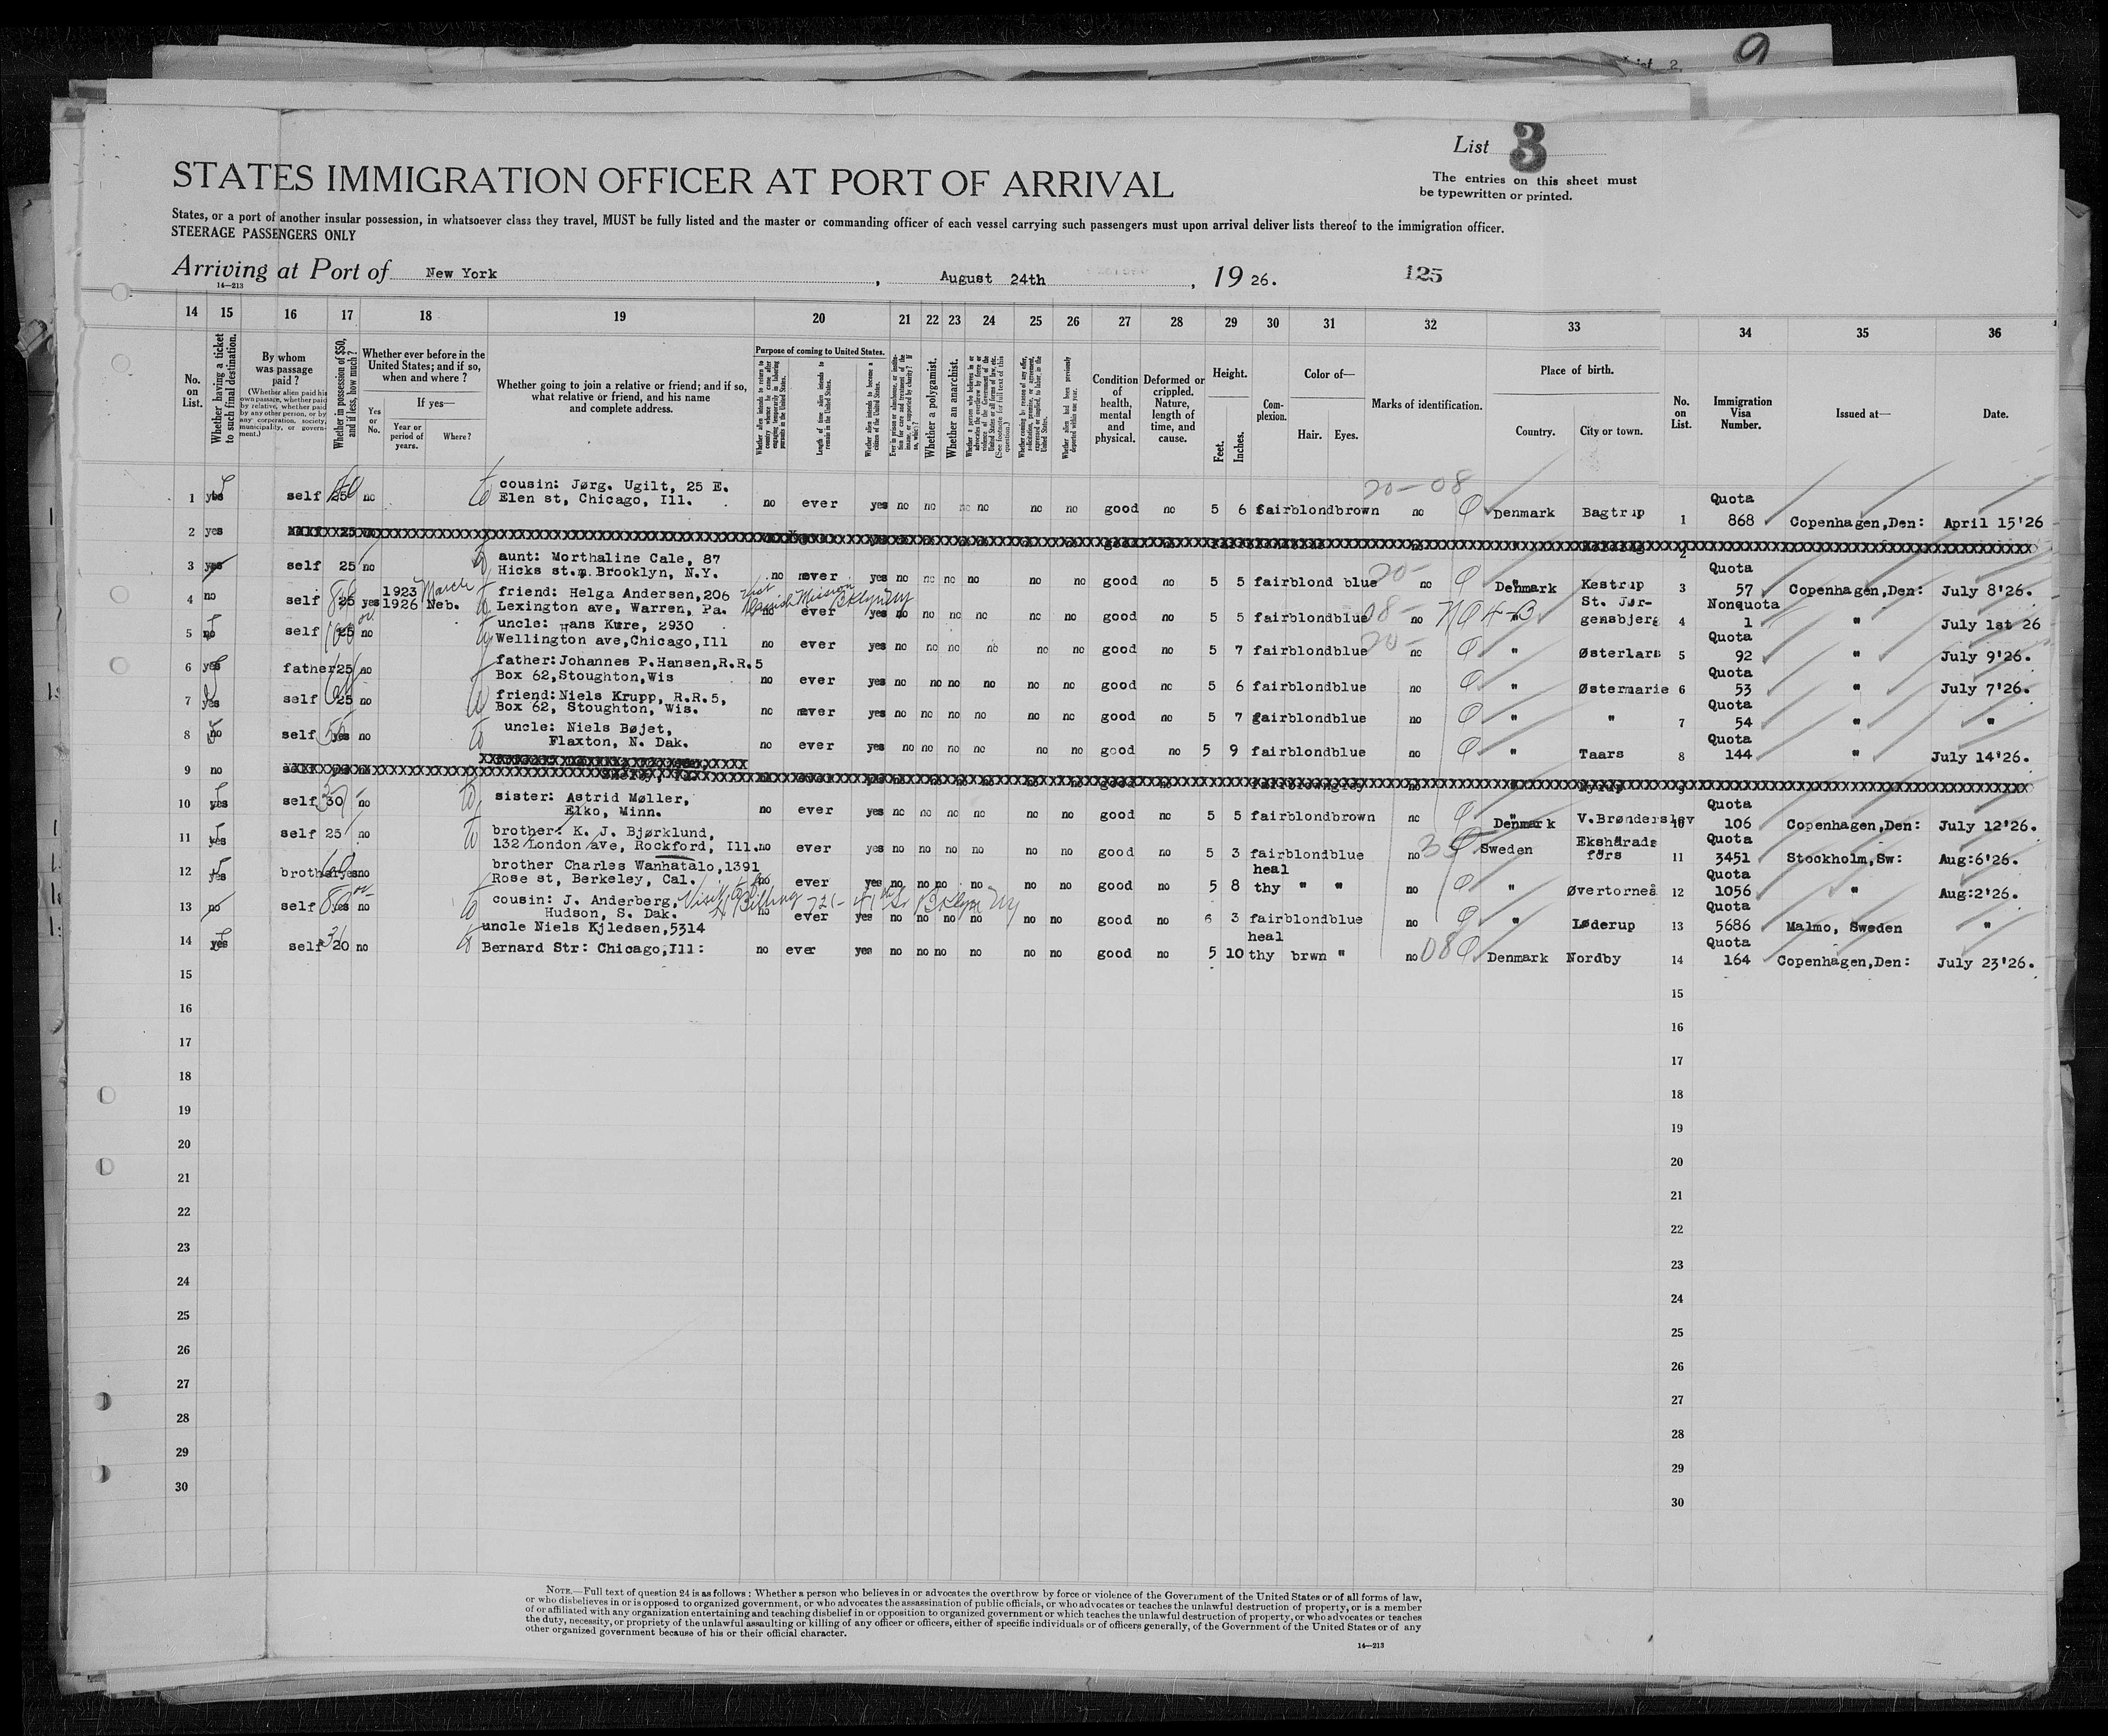 List 3
The entries on this sheet must
be typewritten or printed.
STATES IMMIGRATION OFFICER AT PORT OF ARRIVAL
States, or a port of another insular possession, in whatsoever class they travel, MUST be fully listed and the master or commanding officer of each vessel carrying such passengers must upon arrival deliver lists thereof to the immigration officer.
STEERAGE PASSENGERS ONLY
Arriving at Port of New York, August 24th, 19 26. 125
14—213
14 15 16 17 18 19 20 21 22 23 24 25 26 27 28 29 30 31 32 33 34 35 36
No. on List.
Whether having a ticket to such final destination.
By whom was passage paid?
(Whether alien paid his own passage, whether paid by relative, whether paid by any other person, or by any corporation, society, municipality, or government.)
Whether in possession of $50, and if less, how much?
Whether ever before in the United States; and if so, when and where?
Yes or No.
If yes—
Year or period of years.
Where?
Whether going to join a relative or friend; and if so, what relative or friend, and his name and complete address.
Purpose of coming to United States.
Length of time alien intends to remain in the United States.
Whether alien intends to become a citizen of the United States.
Whether a polygamist.
Whether an anarchist.
Condition of health, mental and physical.
Deformed or crippled. Nature, length of time, and cause.
Height.
Feet. Inches.
Complexion.
Color of—
Hair. Eyes.
Marks of identification.
Place of birth.
Country. City or town.
No. on List.
Immigration Visa Number.
Issued at—
Date.
1 yes self 25 no cousin: Jørg. Ugilt, 25 E.
Elen st, Chicago, Ill. no ever yes no no no no no no good no 5 6 fair blond brown no Denmark Bagtrup 1 Quota 868 Copenhagen,Den: April 15'26
20— 08
2 yes 2
3 yes self 25 no aunt: Morthaline Cale, 87
Hicks st. Brooklyn, N.Y. no never yes no no no no no no good no 5 5 fair blond blue 20- no Denmark Kestrup 3 Quota 57 Copenhagen,Den: July 8'26.
4 no self 25 yes 1923 1926 March Neb. friend: Helga Andersen,206
Lexington ave, Warren, Pa. Danish Mission Bklyn NY no ever yes no no no no no no good no 5 5 fair blond blue 08- no " St. Jør-
gensbjerg 4 Nonquota 1 " July 1st 26
5 no self 25 no uncle: Hans Kure, 2930
Wellington ave,Chicago,Ill no ever yes no no no no no no good no 5 7 fair blond blue 20- no " Østerlars 5 Quota 92 " July 9'26.
6 yes father 25 no father:Johannes P.Hansen,R.R.5
Box 62,Stoughton,Wis no ever yes no no no no no no good no 5 6 fair blond blue no " Østermarie 6 Quota 53 " July 7'26.
7 yes self 25 no friend:Niels Krupp, R.R.5,
Box 62, Stoughton, Wis. no never yes no no no no no no good no 5 7 fair blond blue no " " 7 Quota 54 " "
8 no self yes no uncle: Niels Bøjet,
Flaxton, N. Dak. no ever yes no no no no no no good no 5 9 fair blond blue no " Taars 8 Quota 144 " July 14'26.
9 no 9
10 yes self 30 no sister: Astrid Møller,
Elko, Minn. no ever yes no no no no no no good no 5 5 fair blond brown no Denmark V.Brønderslev 10 Quota 106 Copenhagen,Den: July 12'26.
11 yes self 25 no brother: K. J. Bjørklund,
132 London ave, Rockford, Ill. no ever yes no no no no no no good no 5 3 fair blond blue no Sweden Ekshärads
förs 11 Quota 3451 Stockholm,Sw: Aug:6'26.
12 yes brother yes no brother Charles Wanhatalo,1391
Rose st, Berkeley, Cal. no ever yes no no no no no no good no 5 8 heal
thy " " no " Øvertorneå 12 Quota 1056 " Aug:2'26.
13 no self yes no cousin: J. Anderberg,
Hudson, S. Dak. no ever yes no no no no no no good no 6 3 fair blond blue no " Løderup 13 Quota 5686 Malmo, Sweden "
14 yes self 20 no uncle Niels Kjledsen,5314
Bernard Str: Chicago,Ill: no ever yes no no no no no no good no 5 10 heal
thy brwn " no 08 Denmark Nordby 14 Quota 164 Copenhagen,Den: July 23'26.
15 15
16 16
17 17
18 18
19 19
20 20
21 21
22 22
23 23
24 24
25 25
26 26
27 27
28 28
29 29
30 30
NOTE.—Full text of question 24 is as follows: Whether a person who believes in or advocates the overthrow by force or violence of the Government of the United States or of all forms of law,
or who disbelieves in or is opposed to organized government, or who advocates the assassination of public officials, or who advocates or teaches the unlawful destruction of property, or is a member
of or affiliated with any organization entertaining and teaching disbelief in or opposition to organized government or which teaches the unlawful destruction of property, or who advocates or teaches
the duty, necessity, or propriety of the unlawful assaulting or killing of any officer or officers, either of specific individuals or of officers generally, of the Government of the United States or of any
other organized government because of his or their official character.
14—213